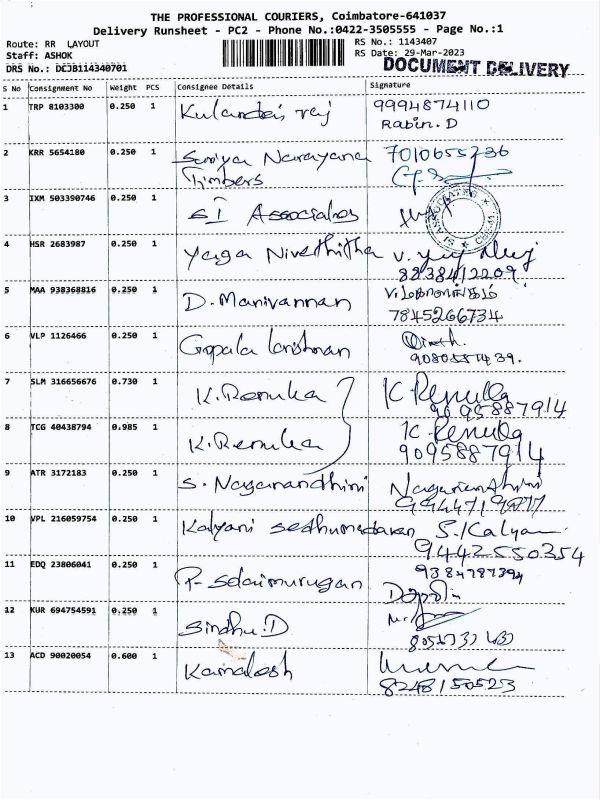 THE PROFESSIONAL COURIERS, Coimbatore-641037
Delivery Runsheet - PC2 - Phone No.:0422-3505555 - Page No.:1
Route: RR LAYOUT
RS No.: 1143407
Staff: ASHOK
RS Date: 29-Mar-2023
DRS No.: DCJB114340701
DOCUMENT DELIVERY
S No Consignment No Weight PCS Consignee Details Signature
1 TRP 8103300 0.250 1 Kulandai raj 9994874110
Rabin. D
2 KRR 5654180 0.250 1 Suriya Narayana 7010655236
Timbers
3 IXM 503390746 0.250 1 SI Associates
4 HSR 2683987 0.250 1 Yaga Nivethitha
8238412209
5 MAA 938368816 0.250 1 D. Manivannan
7845266734
6 VLP 1126466 0.250 1 Gopala krishnan
7 SLM 316656676 0.730 1 K. Renuka K Renuka
9095887914
8 TCG 40438794 0.985 1 K. Renuka K Renuka
9095887914
9 ATR 3172183 0.250 1 S. Naganandhini Naganandhini
10 VPL 216059754 0.250 1 Kalyani S. Kalyani
9442550354
11 EDQ 23806041 0.250 1 P. Selaimurugan 9384787394
12 KUR 694754591 0.250 1 Sindhu. D
13 ACD 90020054 0.600 1 Kamalesh
8248150523